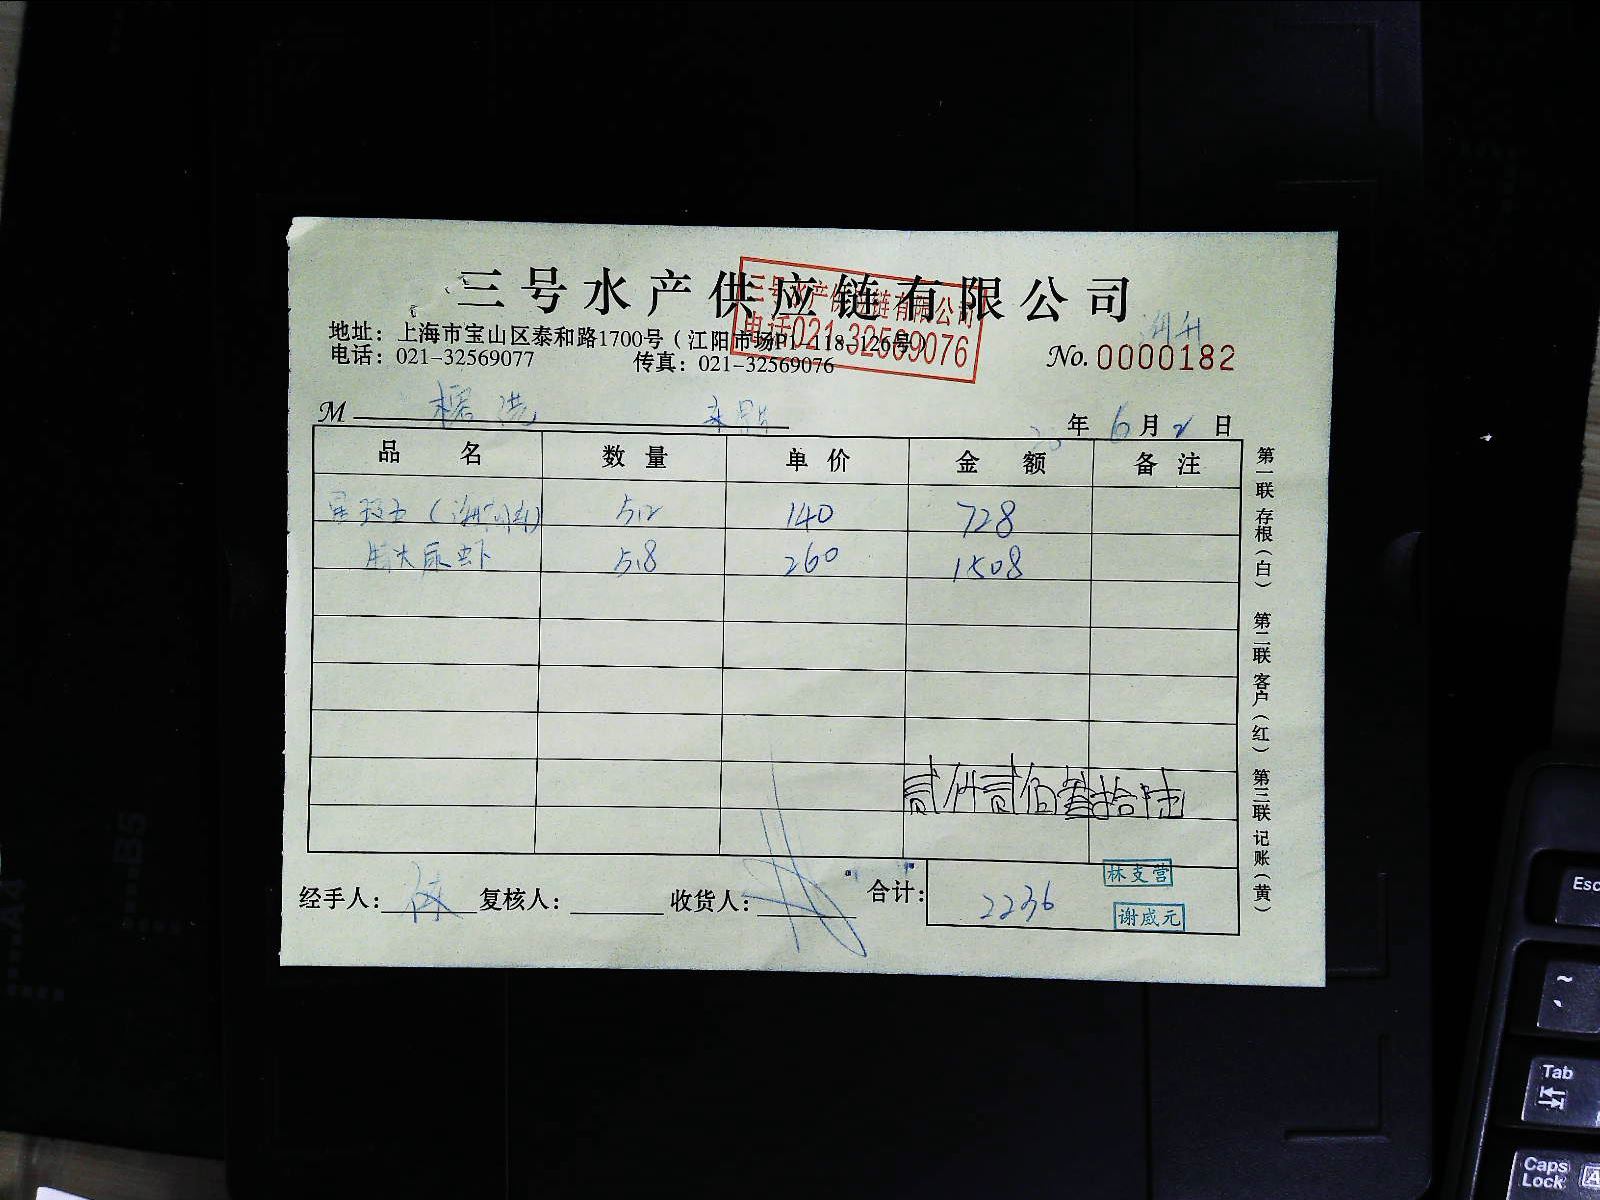 三号水产供应链有限公司
三号水产供应链有限公司
电话021-32569076
地址：上海市宝山区泰和路1700号（江阳市场P1-118-126号）
电话：021-32569077 传真：021-32569076
No. 0000182
M 年 6月2日
品名 数量 单价 金额 备注
5.2 140 728
尿虾 5.8 260 1508
贰仟贰佰叁拾陆
经手人： 复核人： 收货人： 合计： 2236
林支营
谢威元
第一联 存根（白） 第二联 客户（红） 第三联 记账（黄）
B5
A4
Esc
~
Tab
Caps Lock
A